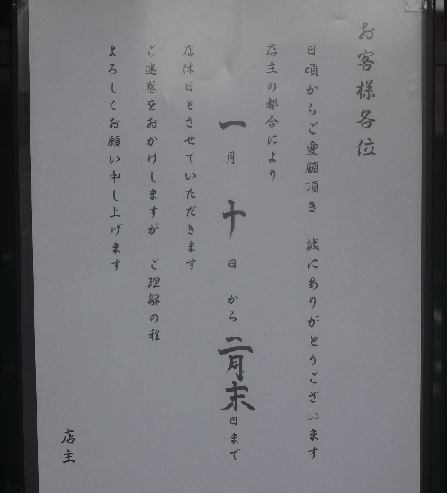 お客様各位
日頃からご愛顧頂き 誠にありがとうございます
店主の都合により
一月十日から二月末日まで
店休日とさせていただきます
ご迷惑をおかけしますが ご理解の程
よろしくお願い申し上げます
店主